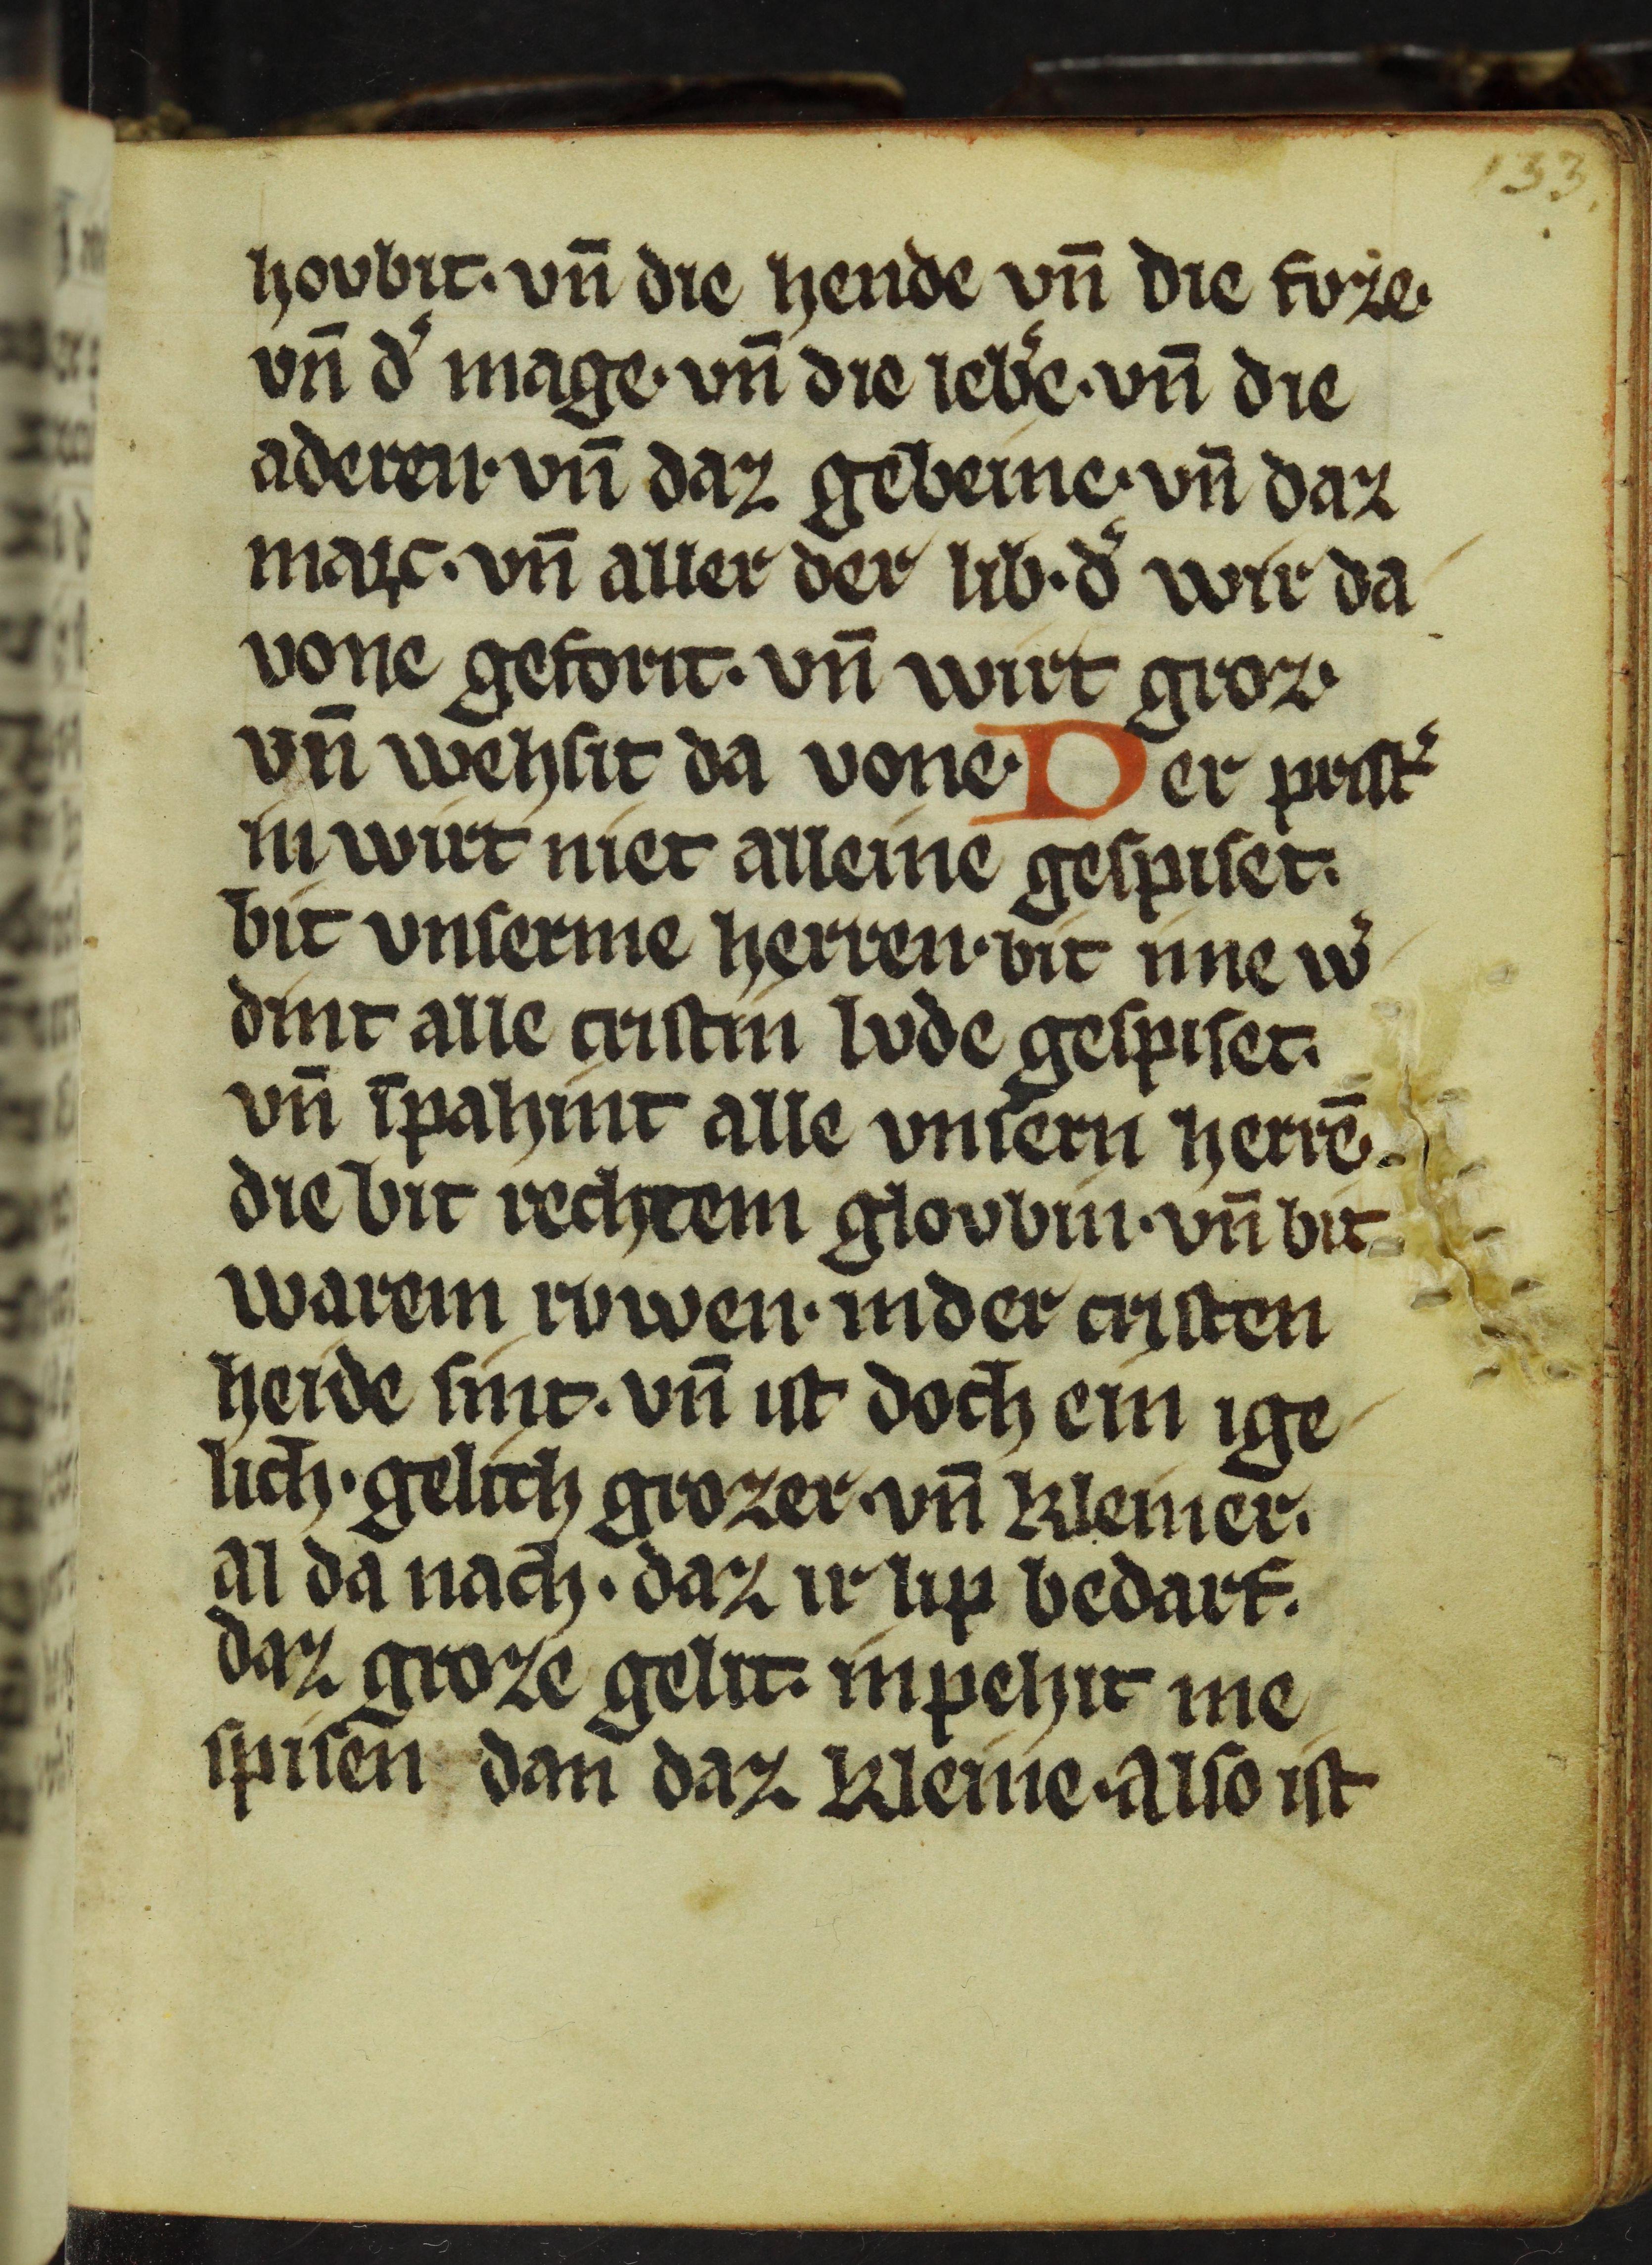 133.
houbit. vn̄ die hende vn̄ die fvze.
vn̄ d͛ mage. vn̄ die leb͛e. vn̄ die
aderen. vn̄ daz gebeine. vn̄ daz
marc. vn̄ aller der lib. d͛ wir da
vone geforit. vn̄ wirt groz.
vn̄ wehsit da vone. Der prist͛
in wirt niet alleine gespiset.
bit vnserme herren. bit ime w͛
dint alle cristin lvde gespiset.
vn̄ īpahint alle vnsern herrē.
die bit rechtem glovbin. vn̄ bit
warem rvwen. in der cristen
heide sint. vn̄ ist doch ein ige
lich. gelich grozer. vn̄ kleiner.
al da nach. daz ir lip bedarf.
daz groze gelit. inpehit me
spisen dan daz kleine. Also ist